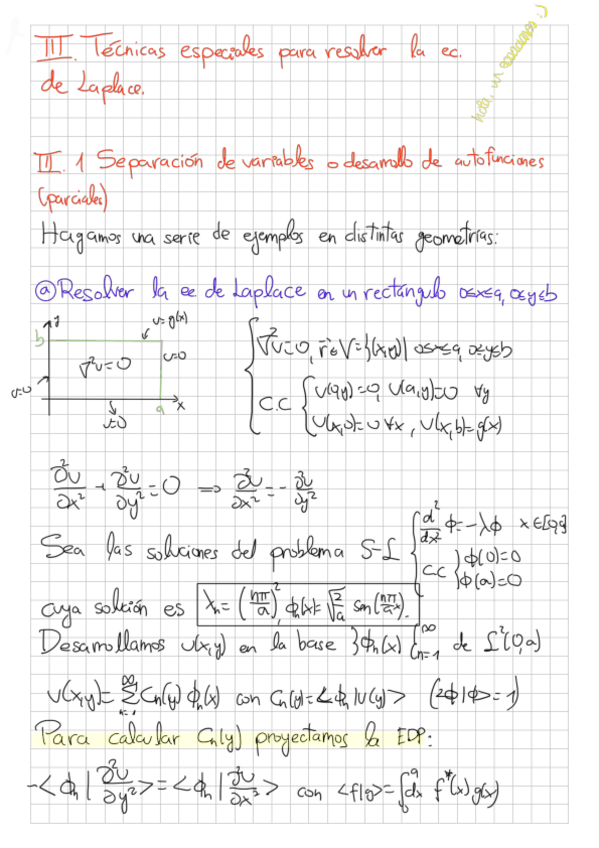 III. Técnicas especiales para resolver la ec.
de Laplace.
hola, un
III. 1 Separación de variables o desarrollo de autofunciones
(parciales)
Hagamos una serie de ejemplos en distintas geometrías:
ⓐ Resolver la ec de Laplace en un rectángulo 0≤x≤a, 0≤y≤b
y
u=g(x)
b
∇²u=0
u=0
u=0
a
x
u=0
∇²u=0, r⃗∈V={(x,y)| 0≤x≤a, 0≤y≤b
C.C { u(0,y)=0, u(a,y)=0 ∀y
u(x,0)=0 ∀x, u(x,b)=g(x)
∂²u/∂x² + ∂²u/∂y² = 0 ⇒ ∂²u/∂x² = - ∂²u/∂y²
Sea las soluciones del problema S-L { d²/dx² ϕ=-λϕ x∈[0,a]
C.C } ϕ(0)=0
ϕ(a)=0
cuya solución es λn=(nπ/a)², ϕn(x)=√2/a sen(nπ/a x).
Desarrollamos u(x,y) en la base }ϕn(x){ ∞ n=1 de L²(0,a)
u(x,y)=∑ ∞ n=1 Cn(y) ϕn(x) con Cn(y)=<ϕn|u(y)> (<ϕ|ϕ>=1)
Para calcular Cn(y) proyectamos la EDP:
-<ϕn|∂²u/∂y²>=<ϕn|∂²u/∂x²> con <f|g>=∫₀ᵃ dx f*(x)g(x)